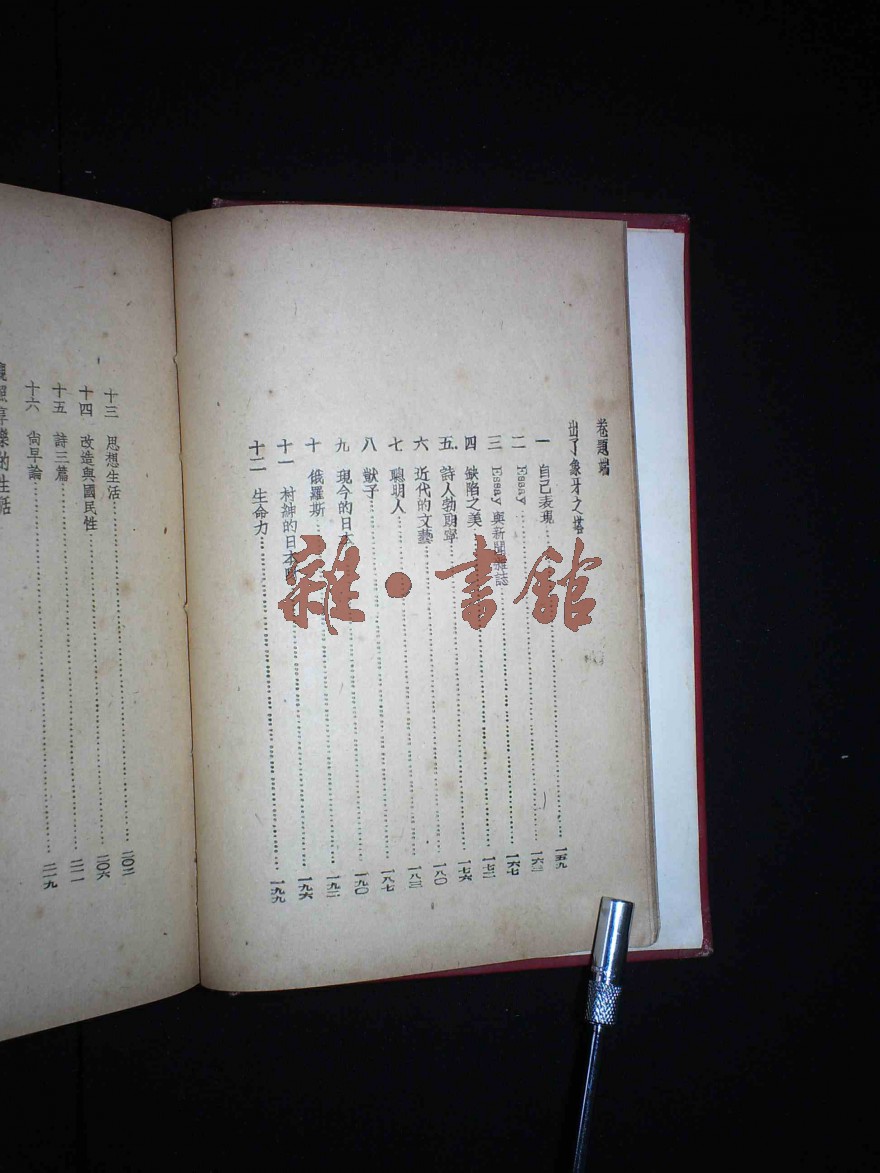 卷題端
出了象牙之塔
一 自己表現……一五九
二 Essay……一六三
三 Essay 與新聞雜誌……一六七
四 缺陷之美……一七二
五 詩人勃朗寧……一七六
六 近代的文藝……一八〇
七 聰明人……一八三
八 獃子……一八七
九 現今的日本……一九〇
十 俄羅斯……一九二
十一 村紳的日本呀……一九六
十二 生命力……一九九
十三 思想生活……二〇二
十四 改造與國民性……二〇六
十五 詩三篇……二一一
十六 尚早論……二一九
觀照享樂的生活
雜·書館